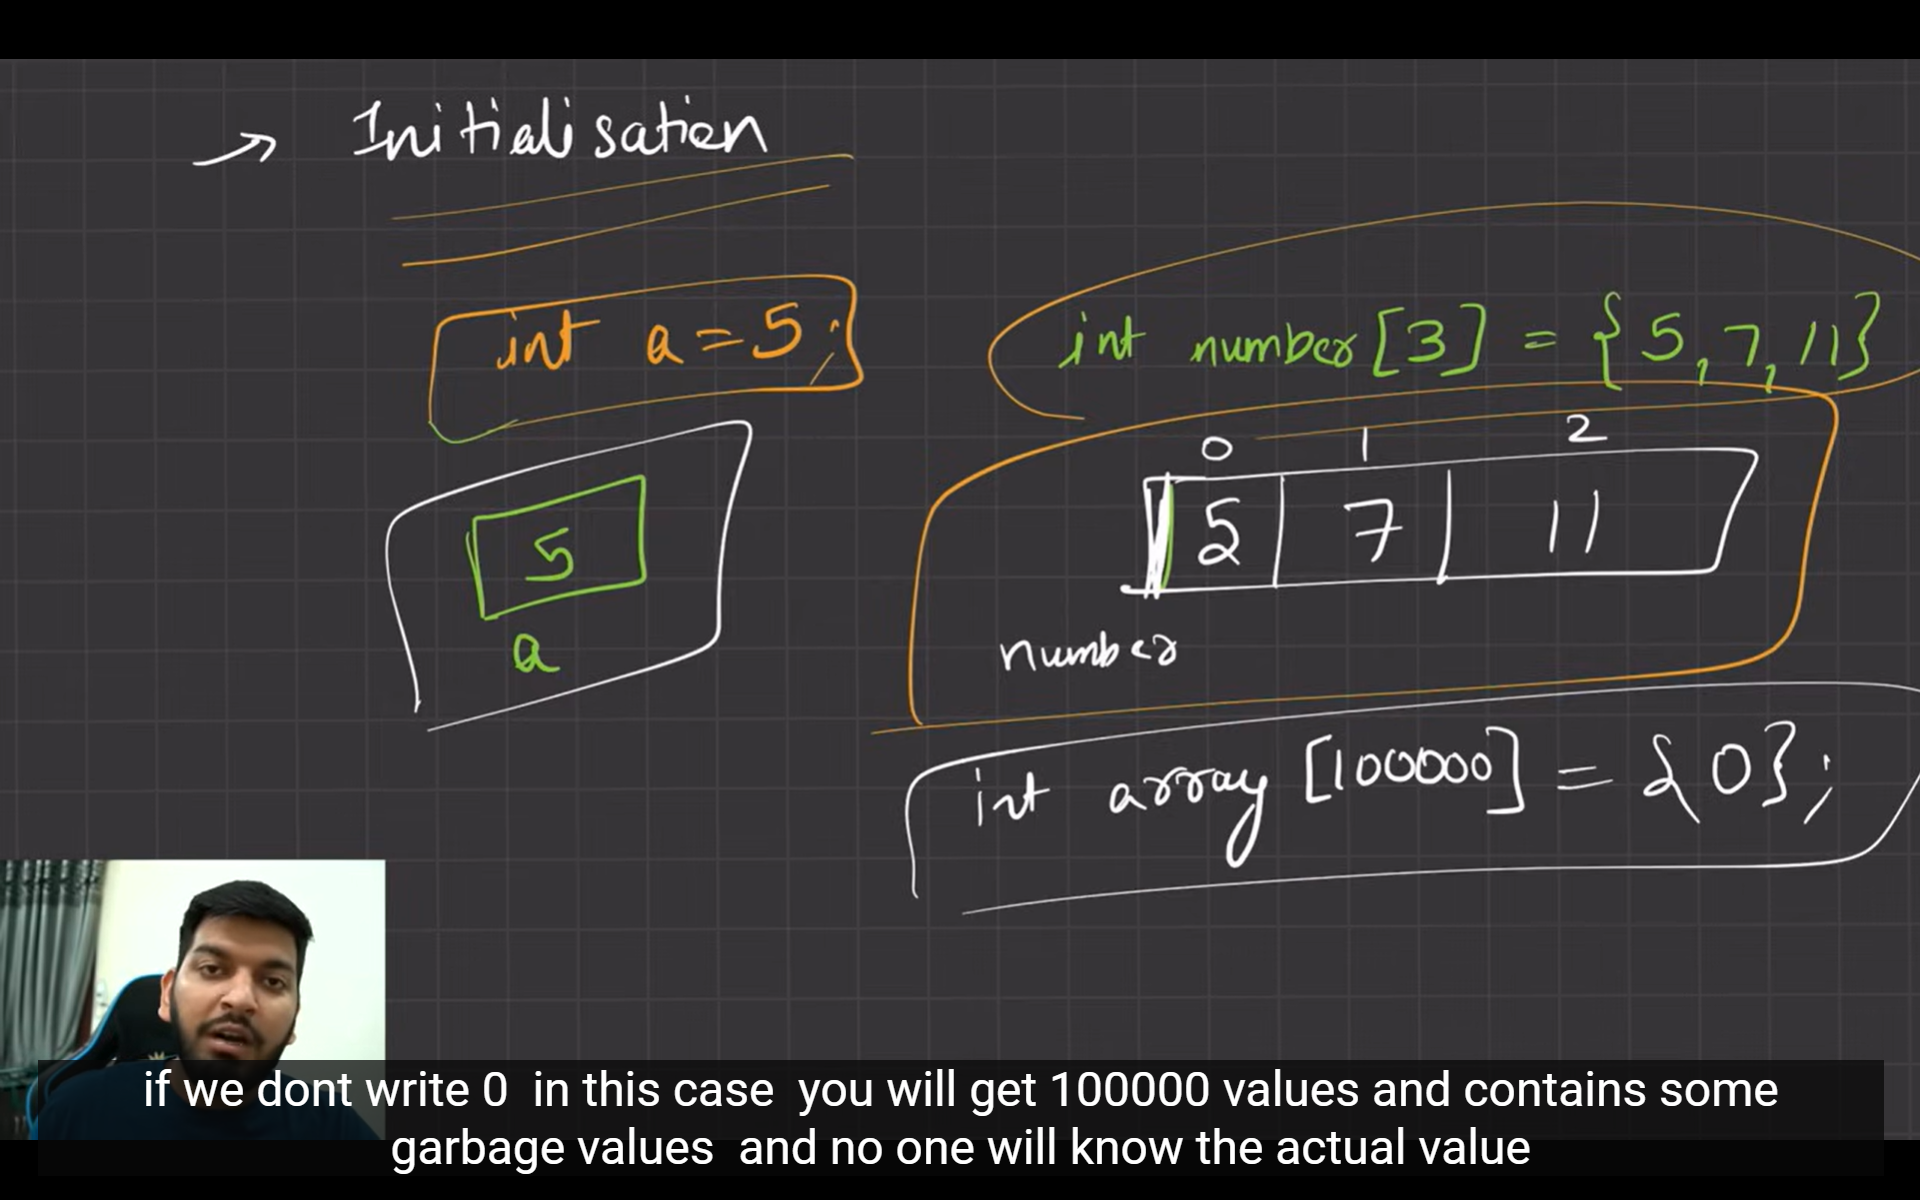 → Initialisation
int a = 5;
5
a
int number[3] = {5, 7, 11}
0 1 2
5 7 11
number
int array [100000] = {0};
if we dont write 0 in this case you will get 100000 values and contains some
garbage values and no one will know the actual value